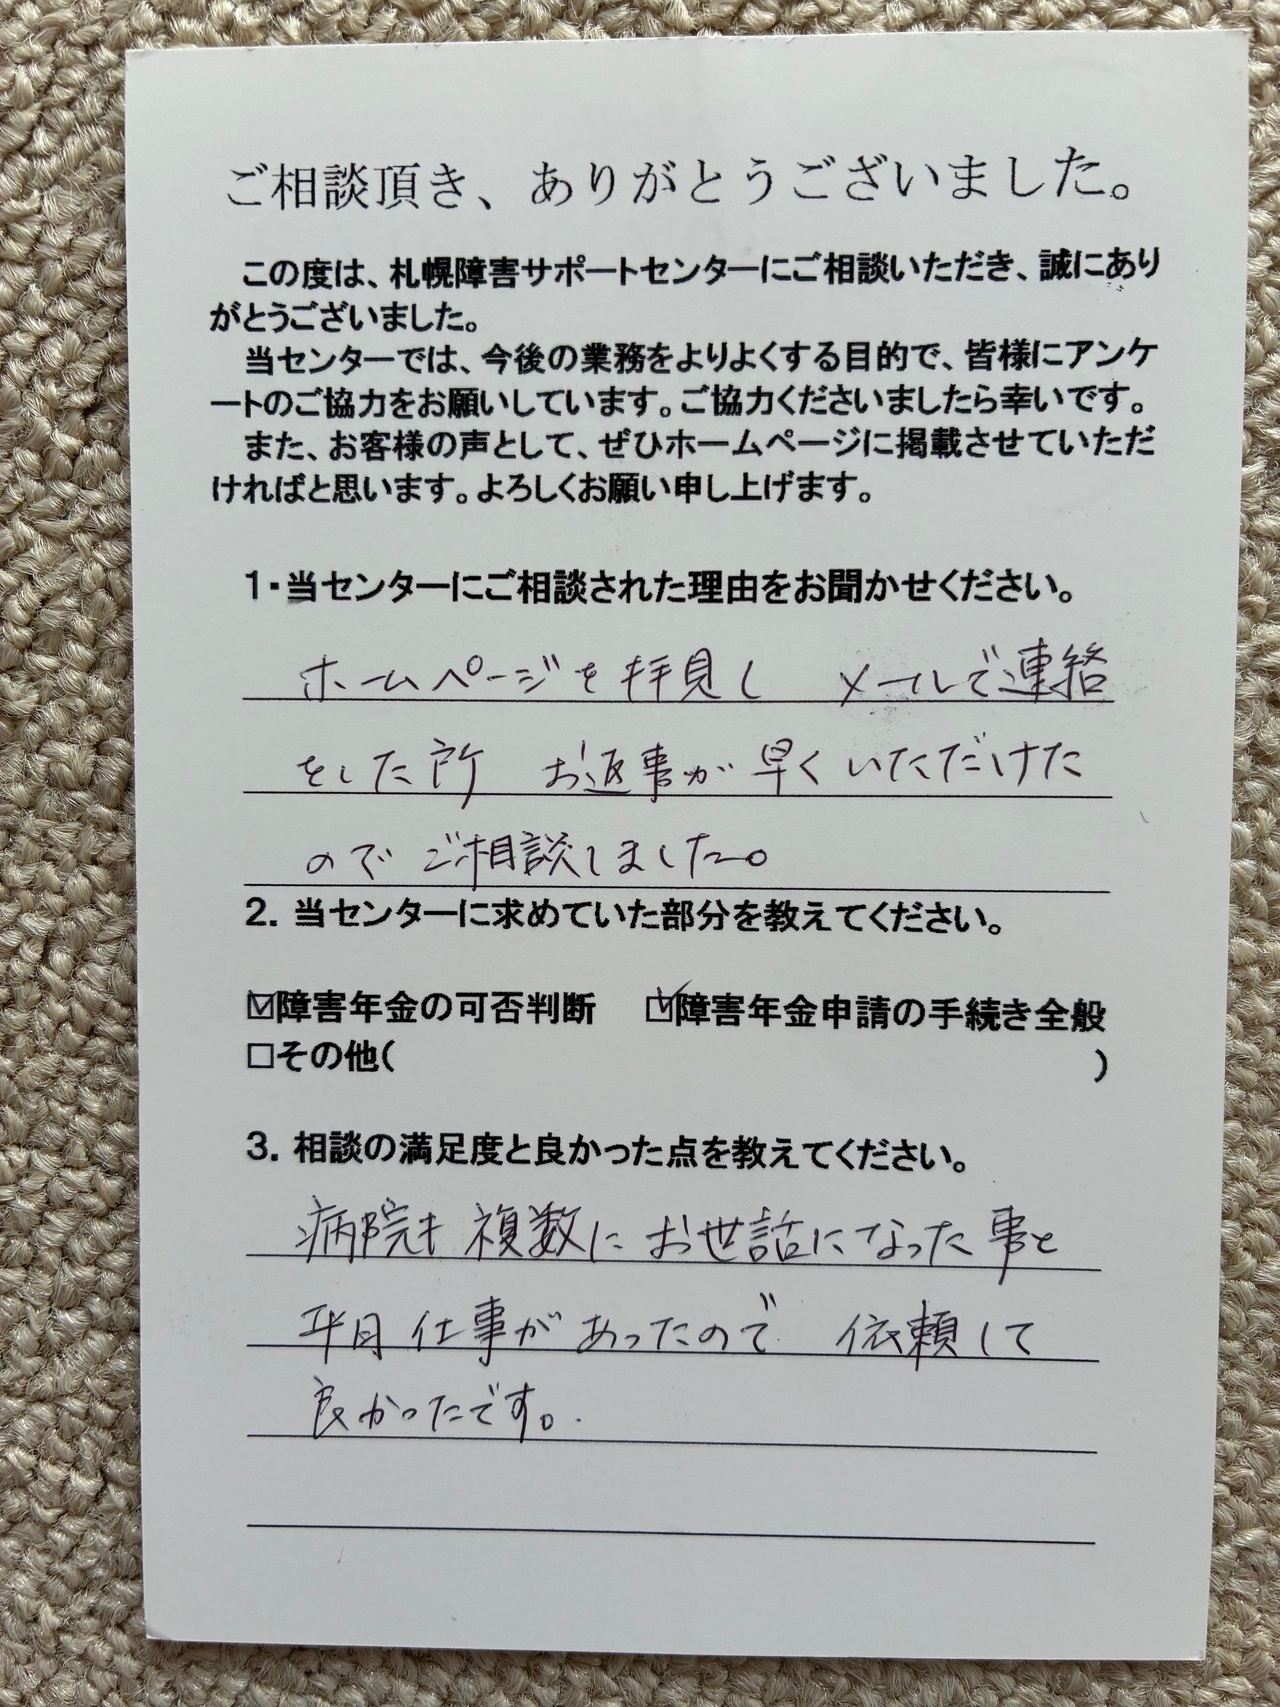 ご相談頂き、ありがとうございました。
この度は、札幌障害サポートセンターにご相談いただき、誠にあり
がとうございました。
当センターでは、今後の業務をよりよくする目的で、皆様にアンケ
ートのご協力をお願いしています。ご協力くださいましたら幸いです。
また、お客様の声として、ぜひホームページに掲載させていただ
ければと思います。よろしくお願い申し上げます。
1・当センターにご相談された理由をお聞かせください。
ホームページを拝見し メールで連絡
をした所 お返事が早くいただけた
のでご相談しました。
2. 当センターに求めていた部分を教えてください。
☑障害年金の可否判断 ☑障害年金申請の手続き全般
□その他( )
3. 相談の満足度と良かった点を教えてください。
病院も複数にお世話になった事と
平日仕事があったので 依頼して
良かったです。